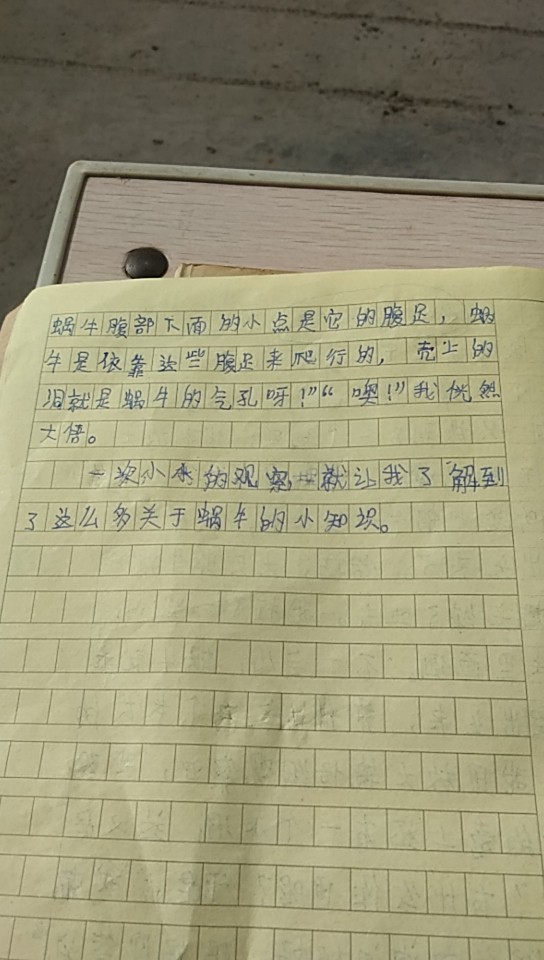 蜗牛腹部下面的小点是它的腹足，蜗
牛是依靠这些腹足来爬行的，壳上的
洞就是蜗牛的气孔呀！”“噢！”我恍然
大悟。
一次小小的观察，就让我了解到
了这么多关于蜗牛的小知识。